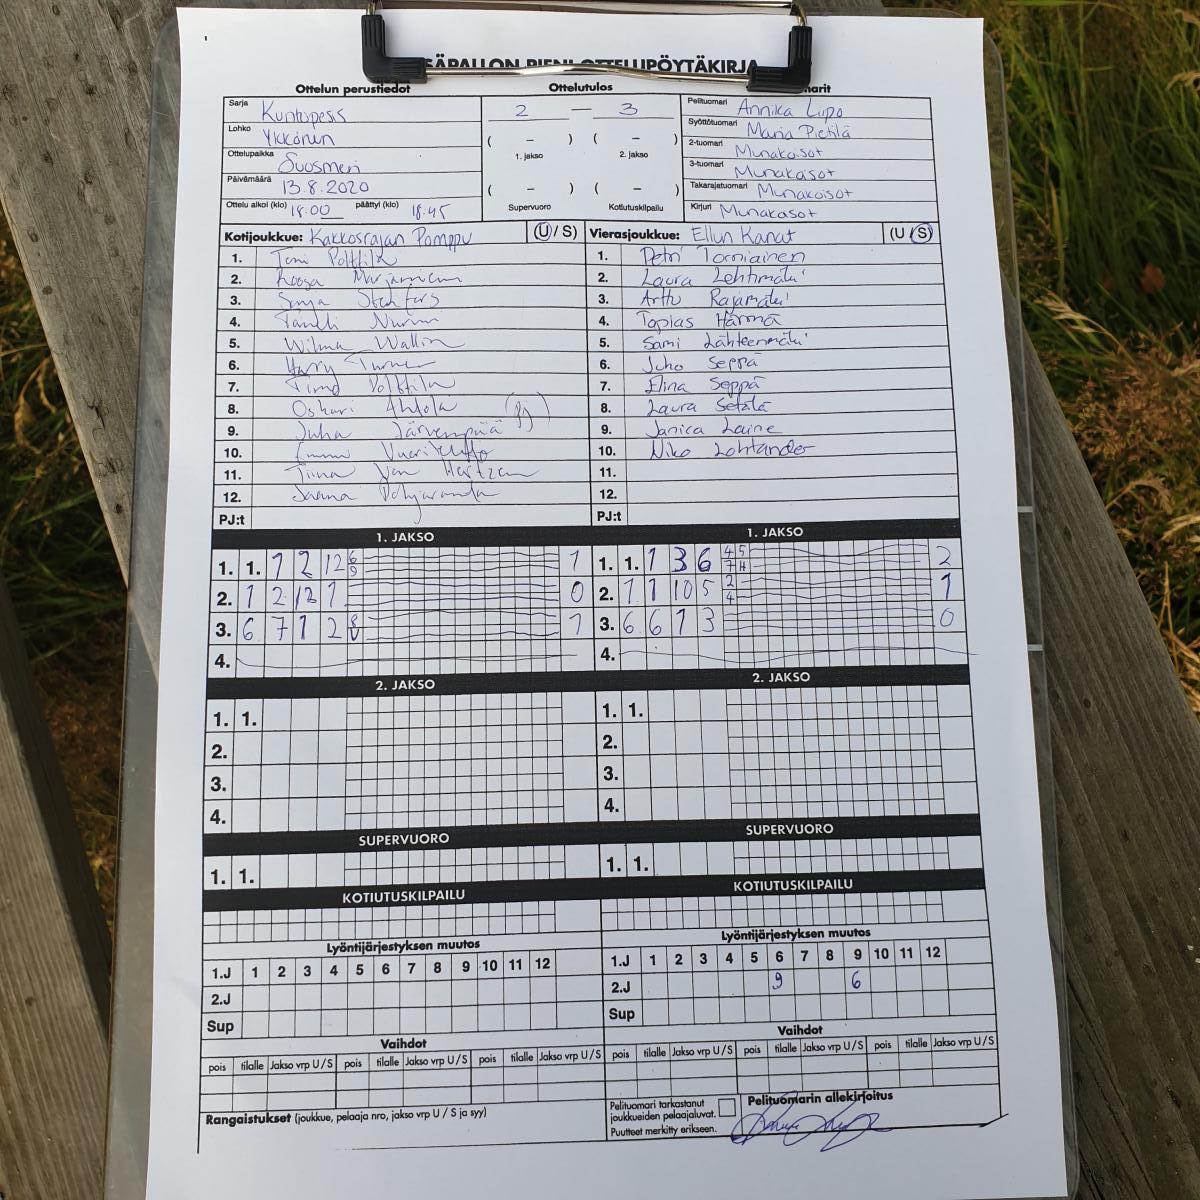 PESÄPALLON PIENI OTTELUPÖYTÄKIRJA
Ottelun perustiedot
Sarja Kuntopesis
Lohko Ykkönen
Ottelupaikka Suosmeri
Päivämäärä 13.8.2020
Ottelu alkoi (klo) 18.00 päättyi (klo) 18.45
Ottelutulos
2 — 3
( – ) ( – )
1. jakso 2. jakso
( – ) ( – )
Supervuoro Kotiutuskilpailu
Pelituomari Annika Liipo
Syöttötuomari Maria Pietilä
2-tuomari Munakoisot
3-tuomari Munakoisot
Takarajatuomari Munakoisot
Kirjuri Munakoisot
Kotijoukkue: Kakkosrajan Pomppu (U / S)
1. Toni Polttila
2. Roosa Mirjamein
3. Sonja Stenfors
4. Taneli Nurmi
5. Wilma Wallin
6. Harry Turner
7. Timo Polttila
8. Oskari Ahtola (pj)
9. Juha Järvenpää
10. Emma
11. Tiina Von Hertzen
12. Saana Pohjaranta
PJ:t
Vierasjoukkue: Ellun Kanat (U / S)
1. Petri Torniainen
2. Laura Lehtimäki
3. Arttu Rajamäki
4. Topias Härmä
5. Sami Lähteenmäki
6. Juho Seppä
7. Elina Seppä
8. Laura Setälä
9. Janica Laine
10. Niko Lohtander
11.
12.
PJ:t
1. JAKSO
1. 1. 1 2 12 6 9 1
2. 1 2 12 1 0
3. 6 7 1 2 8 1
4.
1. JAKSO
1. 1. 1 3 6 4 5 7 2
2. 1 1 10 5 2 4 1
3. 6 6 1 3 0
4.
2. JAKSO
1. 1.
2.
3.
4.
2. JAKSO
1. 1.
2.
3.
4.
SUPERVUORO
1. 1.
SUPERVUORO
1. 1.
KOTIUTUSKILPAILU
KOTIUTUSKILPAILU
Lyöntijärjestyksen muutos
1.J 1 2 3 4 5 6 7 8 9 10 11 12
2.J
Sup
Lyöntijärjestyksen muutos
1.J 1 2 3 4 5 6 7 8 9 10 11 12
2.J 9 6
Sup
Vaihdot
pois tilalle Jakso vrp U / S pois tilalle Jakso vrp U / S pois tilalle Jakso vrp U / S
Vaihdot
pois tilalle Jakso vrp U / S pois tilalle Jakso vrp U / S pois tilalle Jakso vrp U / S
Rangaistukset (joukkue, pelaaja nro, jakso vrp U / S ja syy)
Pelituomari tarkastanut
joukkueiden pelaajaluvat.
Puutteet merkitty erikseen.
Pelituomarin allekirjoitus